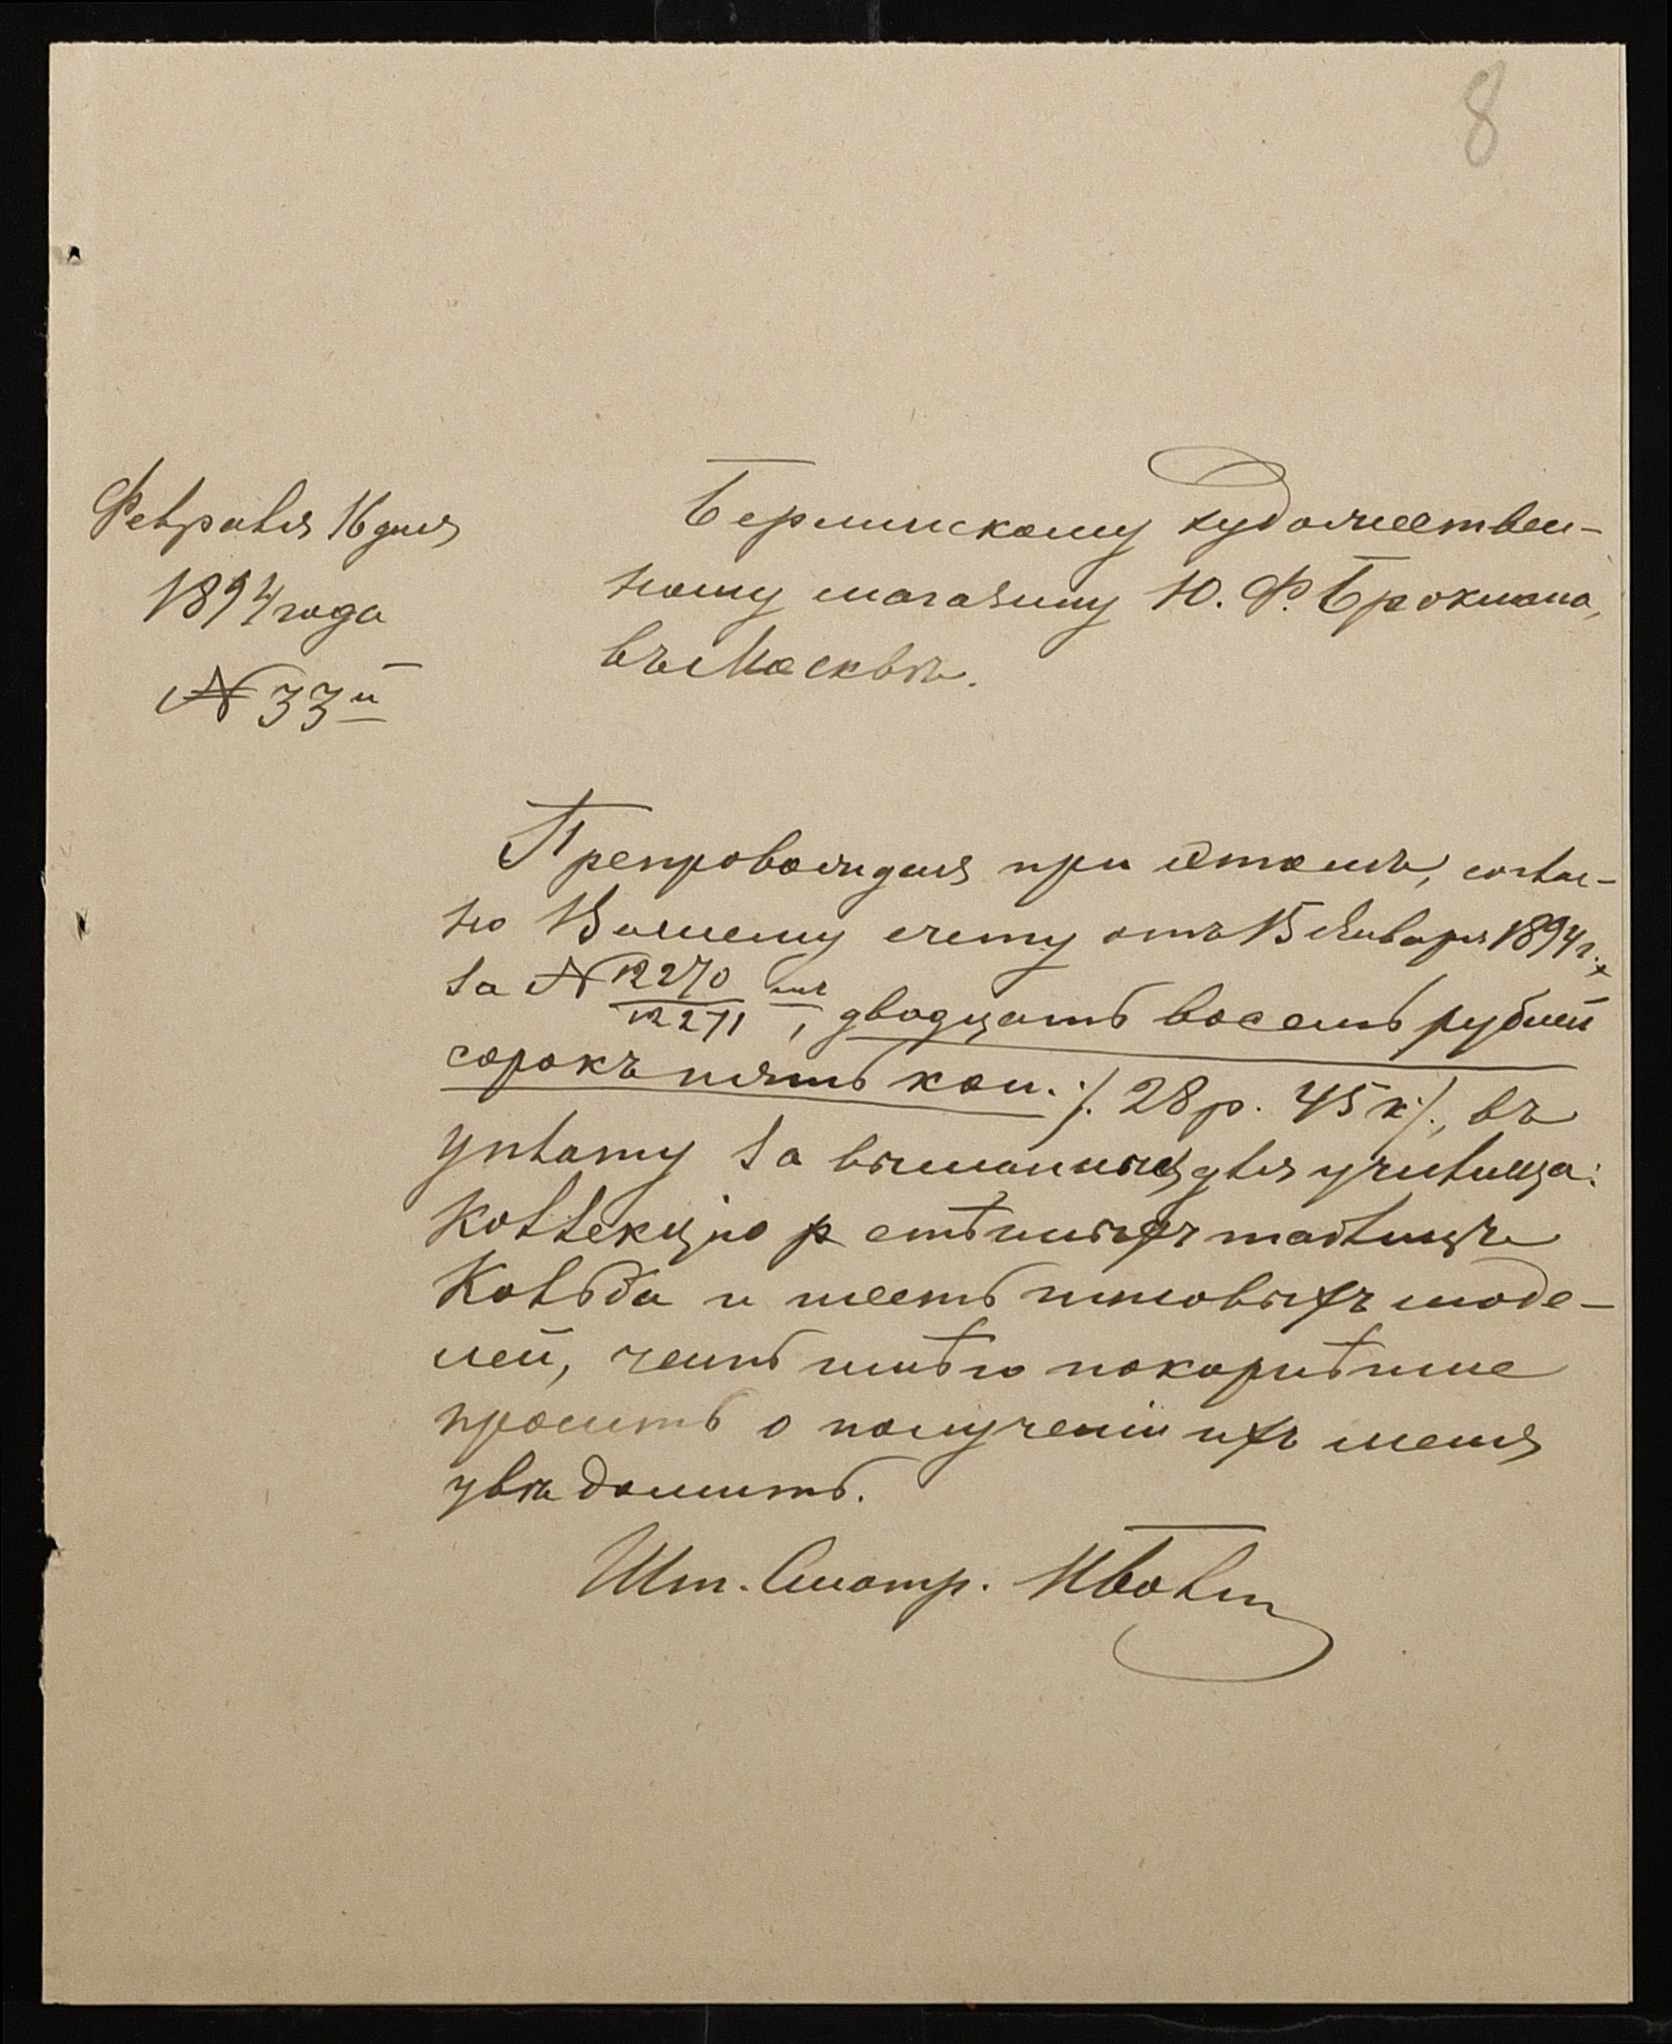 8
Февраля 16 дня
1894 года
№ 33й
Берлинскому художествен-
ному магазину Ю. Ф. Брокмана,
въ Москвѣ.
Препровождая при этомъ, соглас-
но Вашему счету отъ 15 Января 1894 г.,
за № 12270/12271, двадцать восемь рублей
сорокъ пять коп. ./. 28 р. 45 к ./., въ
уплату за выписанныя для училища:
Коллекцію стѣнныхъ таблицъ
Кольба и шесть гипсовыхъ моде-
лей, честь имѣю покорнѣйше
просить о полученіи ихъ меня
увѣдомить.
Шт. Смотр.